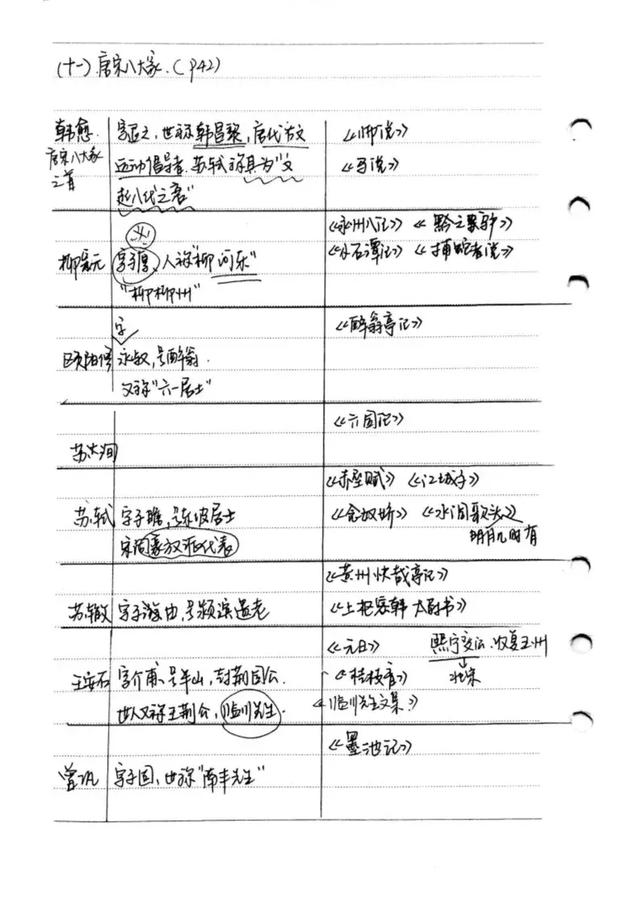 (十一).唐宋八大家.(P42)
韩愈.
唐宋八大家
之首
字退之,世称韩昌黎,唐代古文
运动倡导者.苏轼称其为"文
起八代之衰"
《师说》
《马说》
柳宗元
字子厚,人称"柳河东"
"柳柳州"
《永州八记》《黔之驴》
《小石潭记》《捕蛇者说》
欧阳修
字
永叔,号醉翁.
又称"六一居士"
《醉翁亭记》
苏大洵
《六国论》
苏轼
字子瞻,号东坡居士
宋词豪放派代表
《赤壁赋》《江城子》
《念奴娇》《水调歌头》
明月几时有
苏辙
字子由,号颍滨遗老
《黄州快哉亭记》
《上枢密韩太尉书》
王安石
字介甫、号半山,封荆国公.
世人又称王荆公,临川先生.
《元日》 熙宁变法.收复五州
《桂枝香》 北宋
《临川先生文集》
曾巩
字子固,世称"南丰先生"
《墨池记》